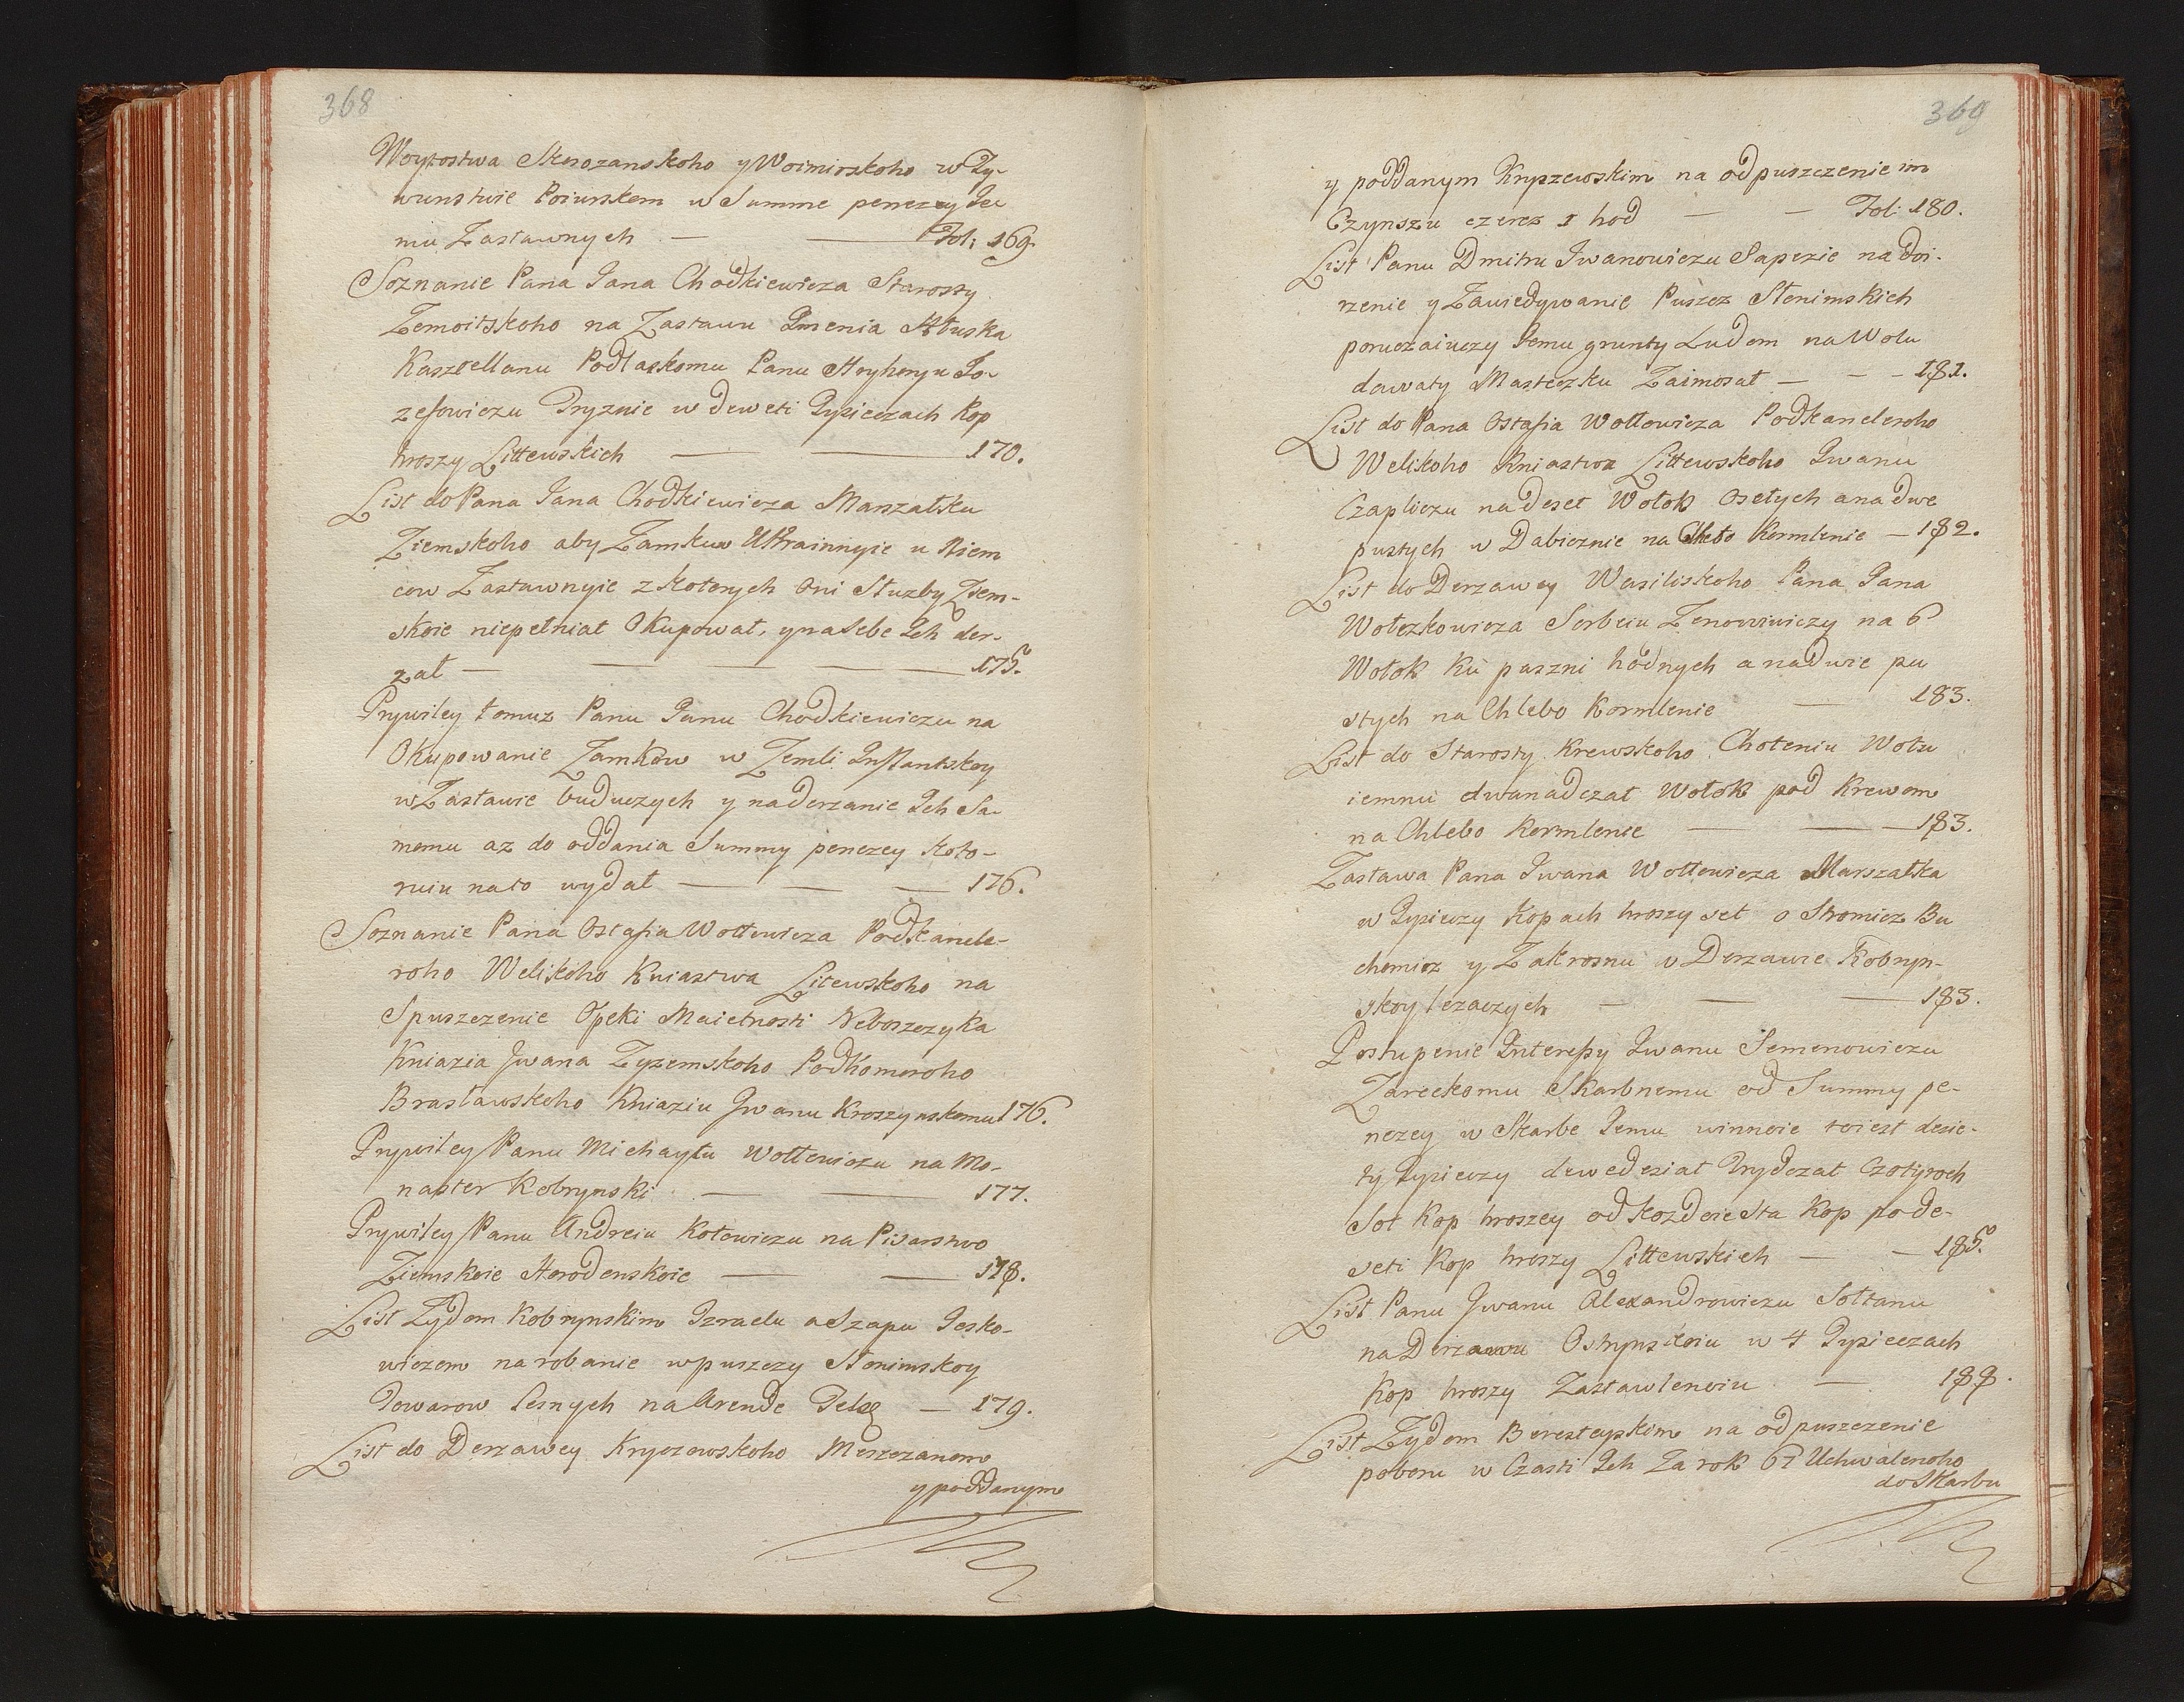 368
Woytostwa Skerozanskoho y Woimioskoho w Ty-
wunstwie Poiurskom w Summe penezey Ie
mu Zastawnych — — Fol: 169.
Soznanie Pana Jana Chodkiewicza Starosty
Zemoitskoho na Zastawu Imenia Hłuska
Kasztellanu Podlaskomu Panu Hryhoryu Jo-
zefowiczu Tryznie w deweti Tysieczach Kop
hroszy Littewskich — — 170.
List do Pana Jana Chodkiewicza Marszałka
Ziemskoho aby Zamkuw Ukrainnyie u Niem
cow Zastawnyie z kotorych oni Służby Ziem-
skoie niepełniat Okupował, y na sebe Ich der-
żał — — — — 175.
Prywiley tomuz Panu Janu Chodkiewiczu na
Okupowanie Zamkow w Zemli Inflantskoy
w Zastawie buduczych y na derzanie Ich Sa-
memu az do oddania Summy penezey koto-
ruiu na to wydał — — — 176.
Soznanie Pana Ostafia Wołłowicza Podkancle-
roho Welikoho Kniastwa Litewskoho na
Spuszczenie Opeki Maietnosti Neboszczyka
Kniazia Jwana Zyzemskoho Podkomoroho
Brasławskoho Kniaziu Jwanu Kroszynskomu 176.
Prywiley Panu Michayłu Wołłowiczu na Mo-
naster Kobrynski — — 177.
Prywiley Panu Andreiu Kotowiczu na Pisarstwo
Ziemskoie Horodenskoie — — 178.
List Zydom Kobrynskim Izraelu a Szapu Iesko-
wiczom na robanie w puszczy Słonimskoy
Towarow Lesnych na Arende — 179.
List do Derzawcy Kryczewskoho Meszczanom
y poddanym
369
y poddanym Kryczewskim na odpuszczenie im
Czynszu czerez 1 hod — — Fol: 180.
List Panu Dmitru Iwanowiczu Sapezie na doi-
rzenie y Zawiedywanie Puszcz Słonimskich
poruczaiuczy Iemu grunty Ludem na Wolu
dawaty Masteczku Zaimosat — — — 181.
List do Pana Ostafia Wołłowicza Podkancleroho
Welikoho Kniastwa Littewskoho Iwanu
Czapliczu na deset Wołok Osełych a na dwe
pustych w Dabicznie na Chlebo Kormlenie — 182.
List do Derzawcy Wasiliskoho Pana Jana
Wołczkowicza Serbeiu Zenowiwiczy na 6
Wołok ku paszni hodnych a na dwie pu
stych na Chlebo Kormlenie — 183.
List do Starosty Krewskoho Choteniu Wołu
iemnu dwanadczat Wołok pod Krewom
na Chlebo Kormlenie — — — 183.
Zastawa Pana Iwana Wołłowicza Marszałka
w Tysieczy Kopach hroszy set o Stromicz Bu
chomicz y Zakrosnu w Derzawie Kobryn-
skoy lezaczych — — — 183.
Postupenie Interessy Iwanu Semenowiczu
Zareckomu Skarbnemu od Summy pe-
nezey w Skarbe Iemu winnoie toiest desie-
ty Tysieczy dewedesiat Trydczat Czotyroch
Sot Kop hroszey od kozdoie Sta Kop po de-
seti Kop hroszy Littewskich — — 185.
List Panu Jwanu Alexandrowiczu Sołtanu
na Derzawu Ostrynskuiu w 4 Tysieczach
Kop hroszy Zastawlenoiu — 188.
List Zydom Beresteyskim na odpuszczenie
poboru w Czasti Ich Za rok 67 Uchwalenoho
do Skarbu